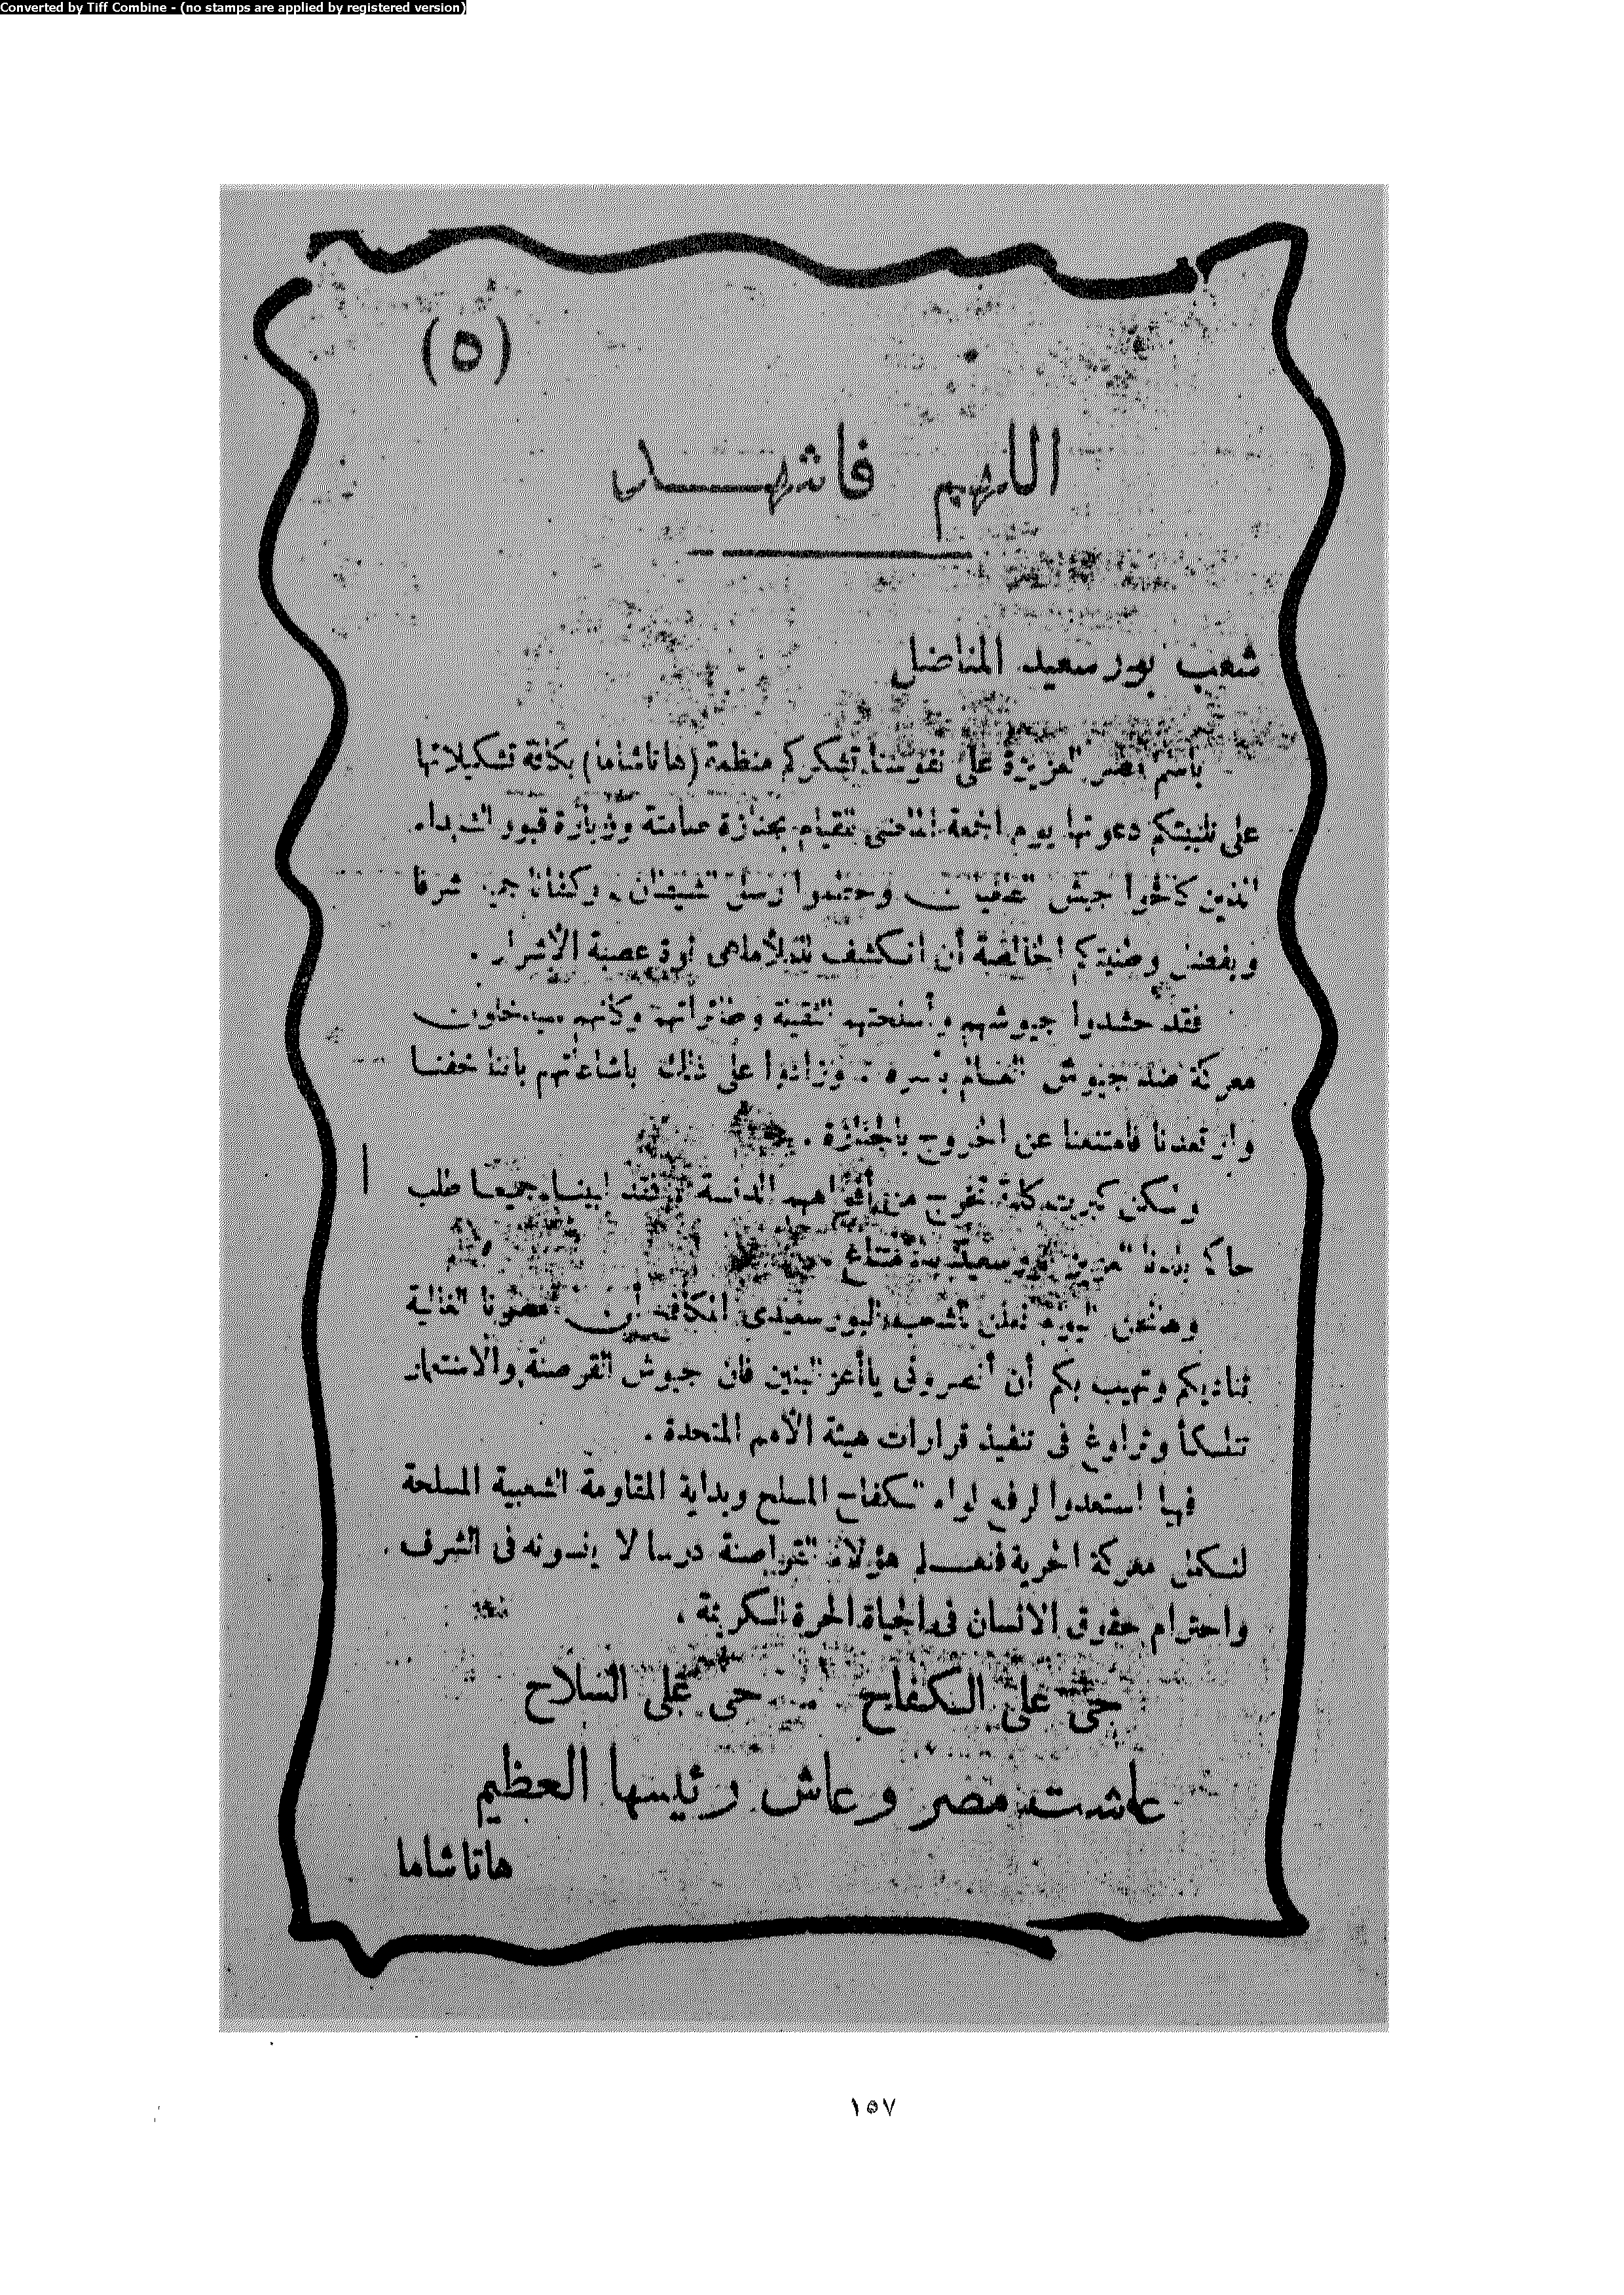 Converted by Tiff Combine - (no stamps are applied by registered version)
(٥)
اللهم فاشهد
شعب بورسعيد المناضل
باسم مصر العزيزة على نفوسنا تشكركم منظمة (هاتاشاما) بكافة تشكيلاتها
على تلبيتكم دعوتها يوم الجمعة الماضى للقيام بجنازة صامتة وزيارة قبور الشهداء
الذين كافحوا جيش وحطموا رسل الشيطان وكفانا شرفا
وبفضل وطنيتكم الخالصة أن انكشف للملأ مدى قوة عصبة الأشرار .
فقد حشدوا جيوشهم وأسلحتهم الثقيلة وطائراتهم وكأنهم سيدخلون
معركة ضد جيوش العالم بأسره . وزادوا على ذلك باشاعاتهم باننا خفنا
وارتعدنا فامتنعنا عن الخروج بالجنازة .
ولكن كبرت كلمة تخرج من أفواههم الدنسة فقد لبينا جميعا طلب
حاكم بلدنا العزيز بورسعيد
وهانحن اليوم نعلن لشعب البورسعيدى المكافح أن مصرنا الغالية
تناديكم وتهيب بكم أن انصرونى ياأعز البنين فان جيوش القرصنة والاستعمار
تتلكأ وتراوغ فى تنفيذ قرارات هيئة الأمم المتحدة .
فهيا استعدوا لرفع لواء الكفاح المسلح وبداية المقاومة الشعبية المسلحة
لنكمل معركة الحرية فنعلم هؤلاء القراصنة درسا لا ينسونه فى الشرف .
واحترام حقوق الانسان فى الحياة الحرة الكريمة .
حى على الكفاح ... حى على السلاح
عاشت مصر وعاش رئيسها العظيم
هاتاشاما
١٥٧